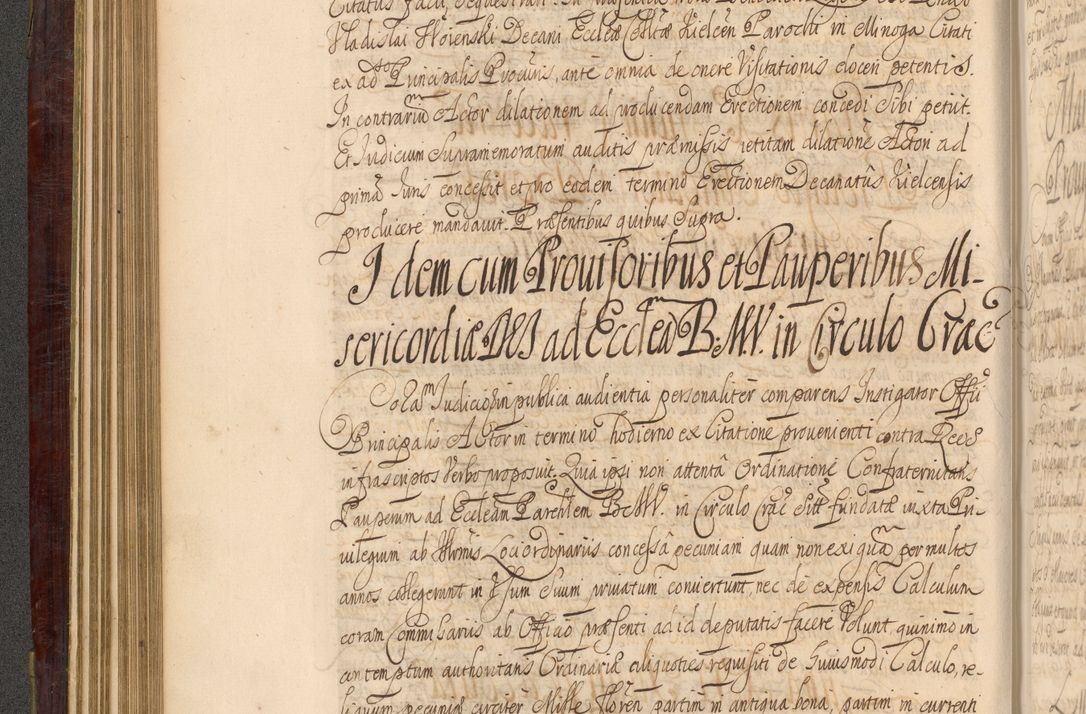 Vladislai Decani Ecclæ Colltæ Kielcen Parochi in Minoga Citati
ex adso Principalis Procuris, ante omnia de onere Visitationis doceri petentis.
In contrariũ Actor dilationem ad producendam Erectionem concedi Sibi petiit.
Et Iudicium Supramemoratum auditis præmissis petitam dilationē Actori ad
primā Iuris concessit et pro eodem termino Erectionem Decanatûs Kielcensis
producere mandavit. Præsentibus quibus Supra.
Idem cum Provisoribus et Pauperibus Mi-
sericordiæ DEI ad Ecclēa B: M V. in Circulo Crac
Iudicioq in publica audientia personaliter comparens Instigator Offii
Principalis Actor in termino hodierno ex Citatione provenienti contra Reos
infrascriptos Verbo proposuit. Quia ipsi non attentâ Ordinatione Confraternitatis
Pauperum ad Eccleam Parchlem B. M V. in Circulo Crac sittm fundatæ iuxta Pri-
vilegium ab Illrmis Loci ordinariis concessã pecuniam quam non exiguam per multos
annos collegerunt in Usum suum privatum convertunt, nec de expensis Calculum
coram Commissariis ab Officio præsenti ad id deputatis facere Volunt, quinimo in
contemptum authoritatis Ordinariæ aliquoties requisiti de huiusmodi Calculo, re-
liquum pecuniæ circiter Mille floren partim in antiqua bona, partim in currenti